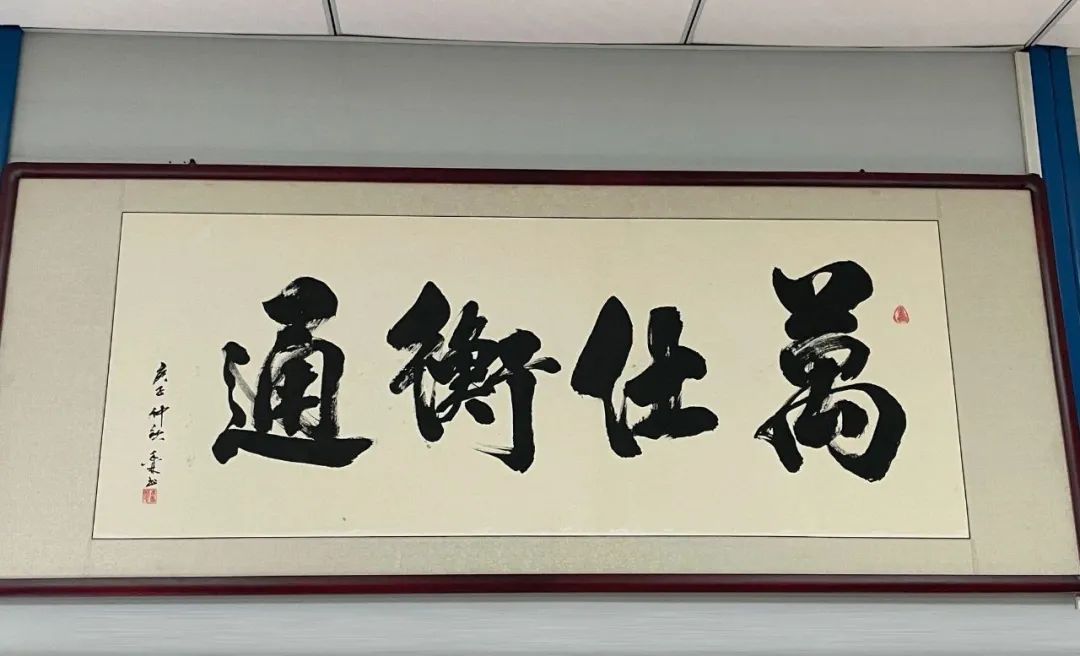 萬仕衡通
庚子仲秋